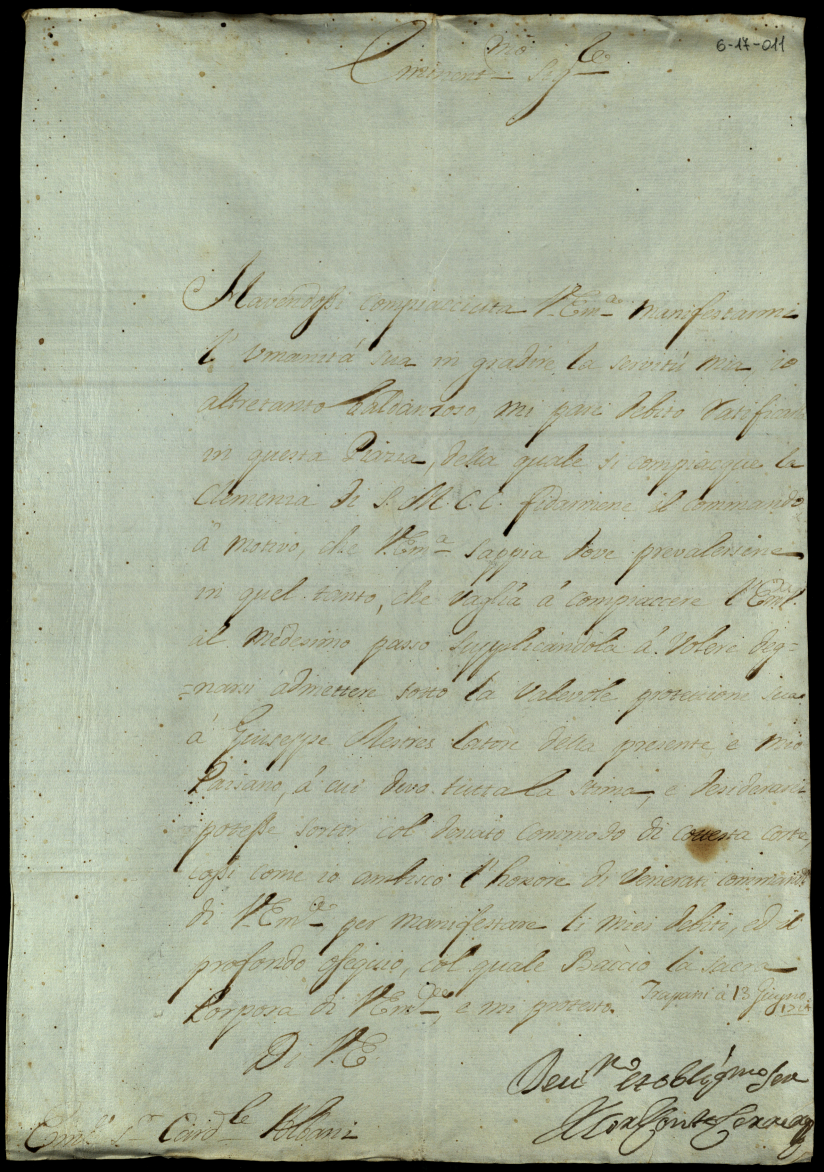 6-17-011
Eminent.mo Sig.re
Havendosi compiacciuta V. Em.a manifestarmi
l'umanità sua in gradire la servitù mia, io
altretanto baldanzoso mi pare debito ratificarla
in questa Piazza, della quale si compiacque la
Clemenza di S. M. C. C. fidarmene il commando
à motivo, che V. Em.a sappia dove prevalersene
in quel tanto, che vaglia à compiaccere l'Em.
al medesimo passo supplicandola à volere deg=
=narsi admettere sotto la valevole protezzione sua
à Giuseppe Mestres latore della presente e mio
Paisano, à cui devo tutta la stima, e desiderarei
potesse sortir col donato commodo di cotesta corte,
così come io ambisco l'honore di venerati commandi
di V. Em.a per manifestare li miei debiti, ed il
profondo osequio, col quale Baccio la sacra
Porpora di V. Em.a, e mi protesto. Trapani à 13 Giugno
Di V. E.
Devu.mo et obblig.mo Ser
Em.o S.r Card.le Albani